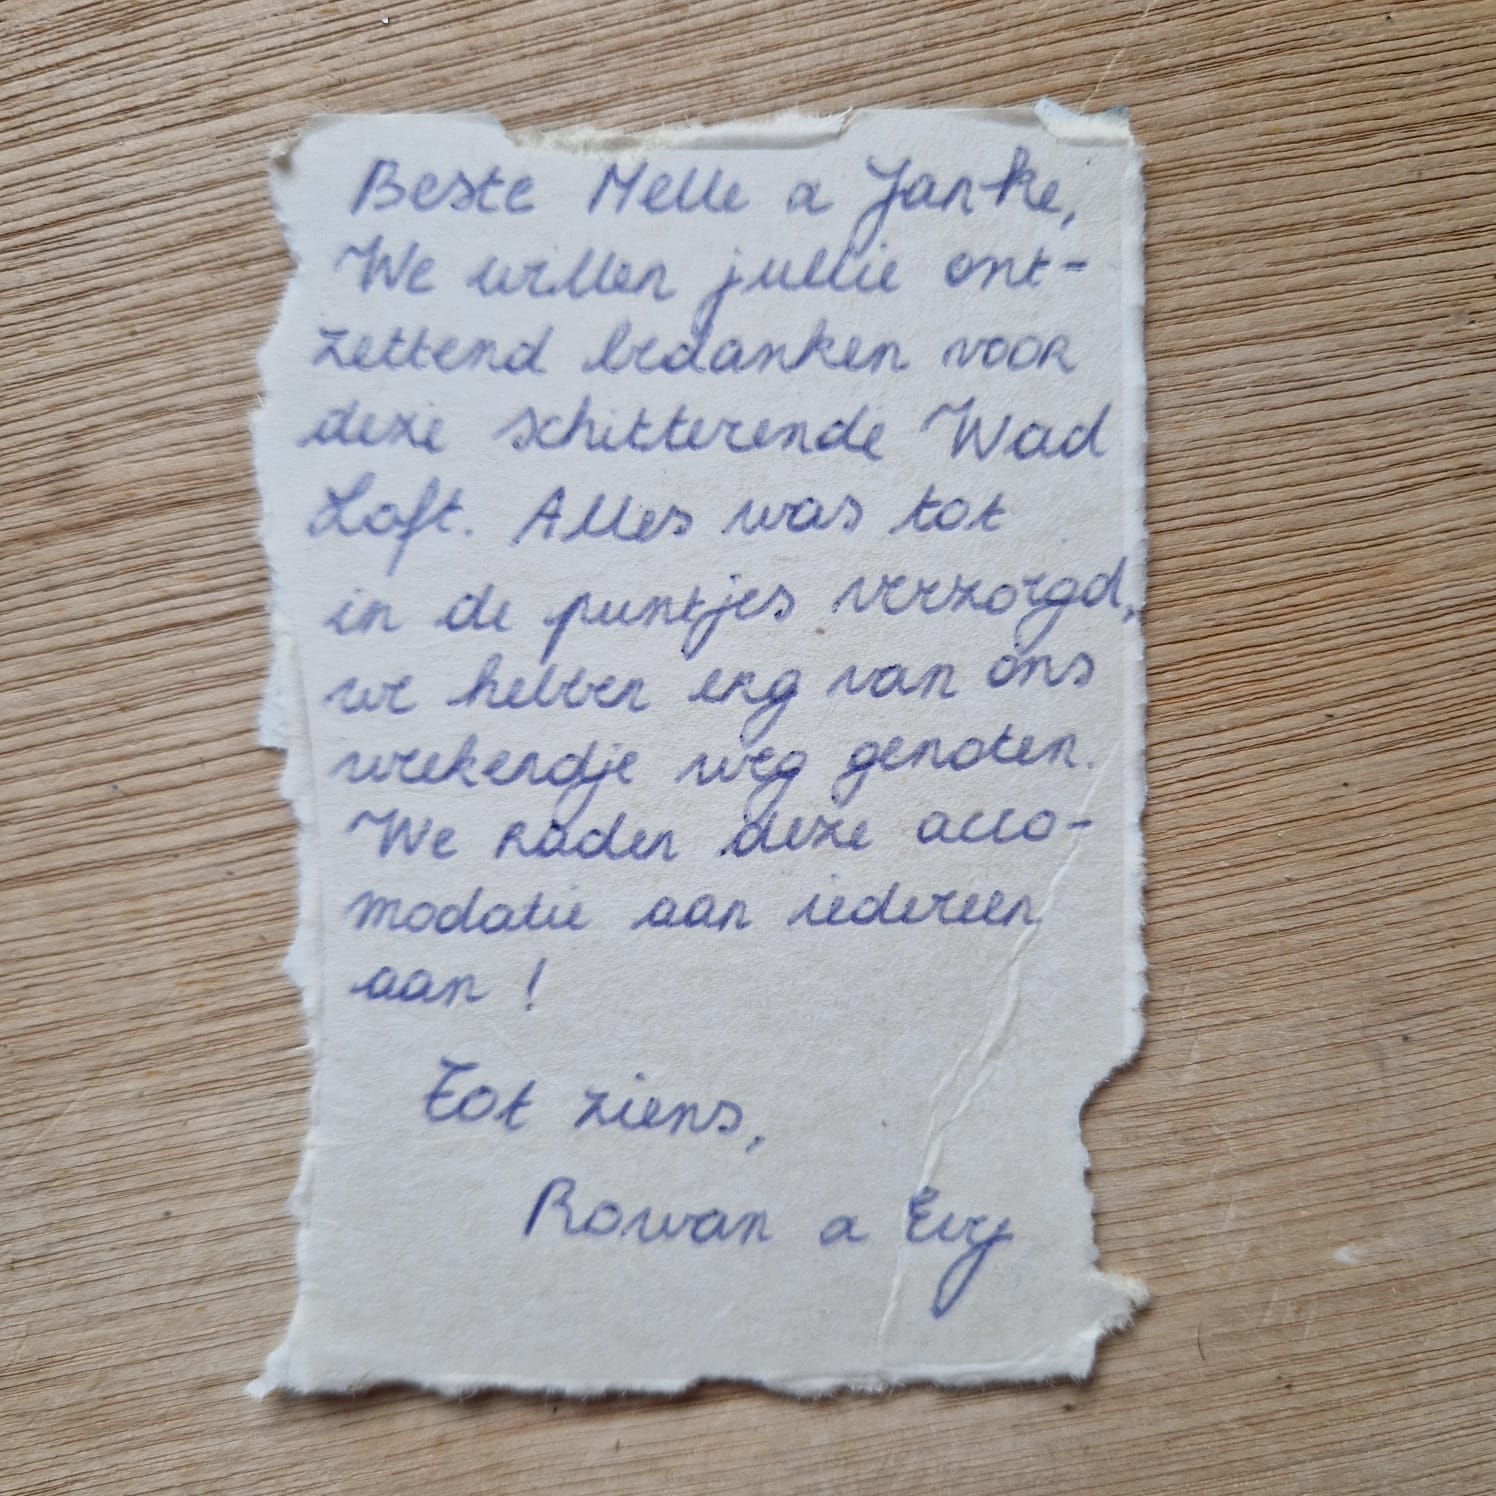 Beste Melle & Janke,
We willen jullie ont-
zettend bedanken voor
deze schitterende Wad
Loft. Alles was tot
in de puntjes verzorgd,
we hebben erg van ons
weekendje weg genoten.
We raden deze acco-
modatie aan iedereen
aan !
Tot ziens,
Rowan & Evy